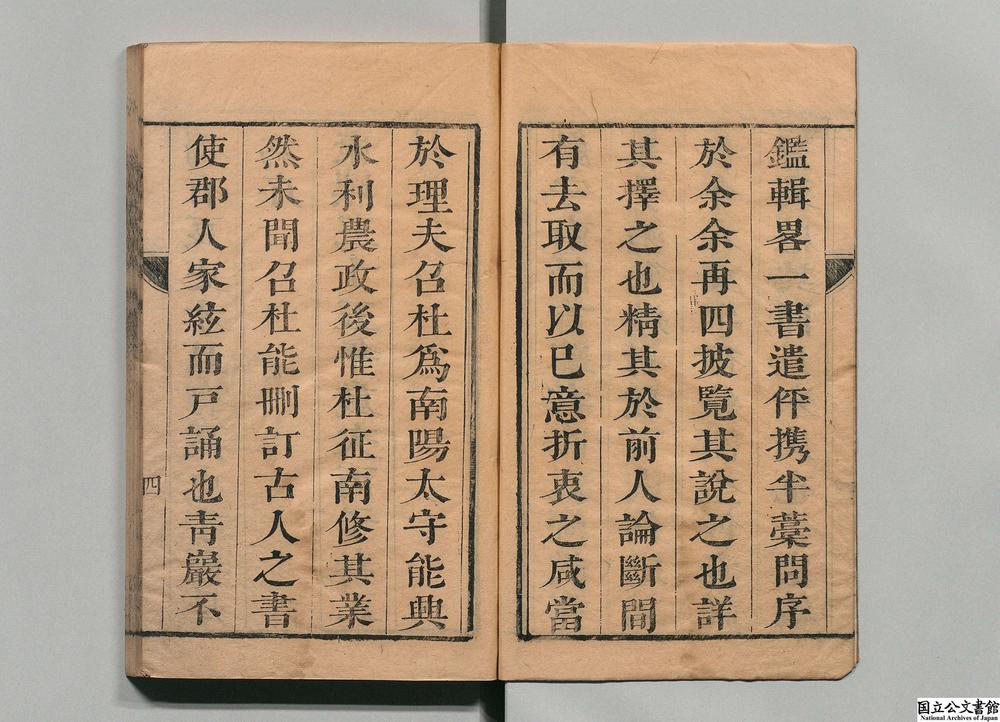 鑑輯畧一書遣伻攜半藁問序
於余余再四披覽其說之也詳
其擇之也精其於前人論斷間
有去取而以已意折衷之咸當
於理夫召杜爲南陽太守能興
水利農政後惟杜征南修其業
然未聞召杜能刪訂古人之書
使郡人家絃而戸誦也靑巖不
四
国立公文書館
National Archives of Japan